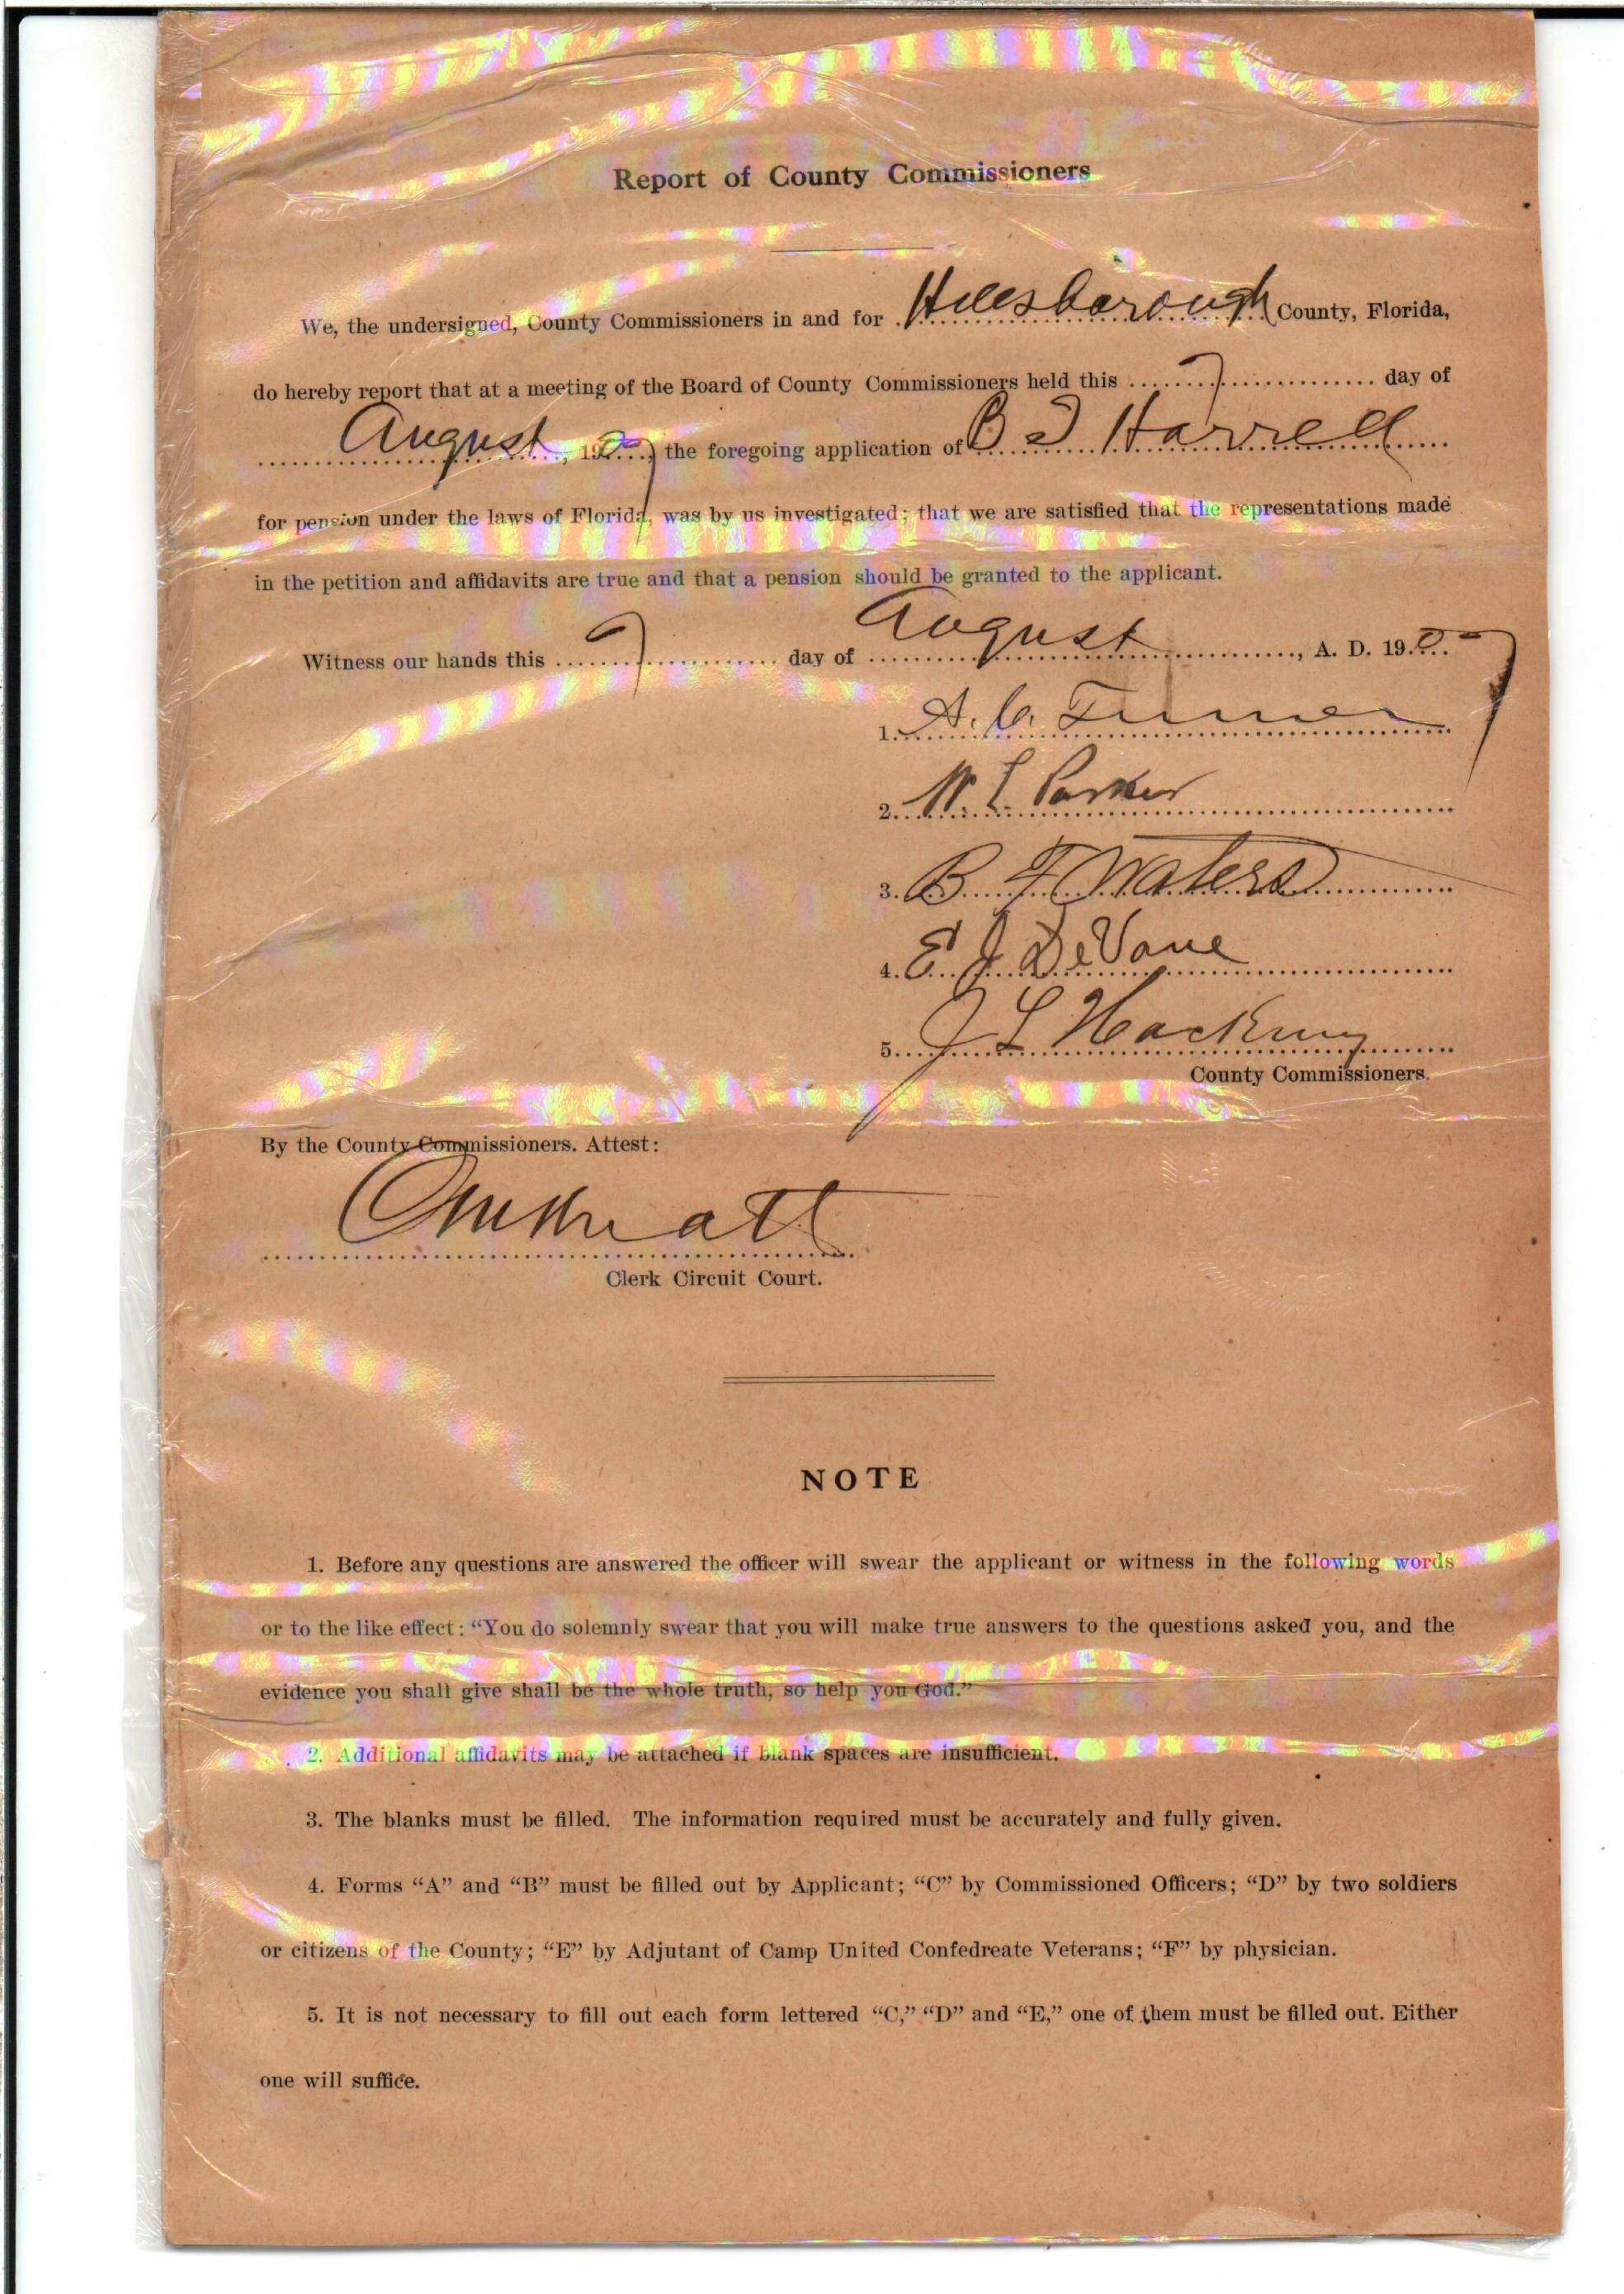 Report of County Commissioners
We, the undersigned, County Commissioners in and for Hillsborough County, Florida,
do hereby report that at a meeting of the Board of County Commissioners held this 7 day of
August, 1907 the foregoing application of B J Harrell
for pension under the laws of Florida, was by us investigated; that we are satisfied that the representations made
in the petition and affidavits are true and that a pension should be granted to the applicant.
Witness our hands this 7 day of August, A. D. 1907
1. A. C. Turner
2. W. L. Parker
3. B F Waters
4. E J DeVane
5. J L Hackney
County Commissioners.
By the County Commissioners. Attest:
Clerk Circuit Court.
NOTE
1. Before any questions are answered the officer will swear the applicant or witness in the following words
or to the like effect: “You do solemnly swear that you will make true answers to the questions asked you, and the
evidence you shall give shall be the whole truth, so help you God.”
2. Additional affidavits may be attached if blank spaces are insufficient.
3. The blanks must be filled. The information required must be accurately and fully given.
4. Forms “A” and “B” must be filled out by Applicant; “C” by Commissioned Officers; “D” by two soldiers
or citizens of the County; “E” by Adjutant of Camp United Confedreate Veterans; “F” by physician.
5. It is not necessary to fill out each form lettered “C,” “D” and “E,” one of them must be filled out. Either
one will suffice.